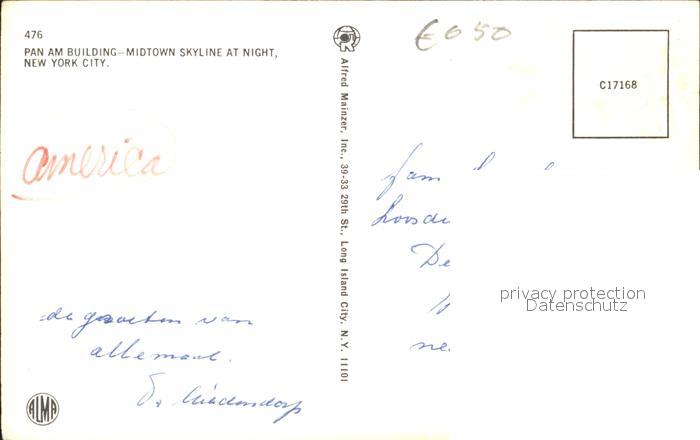 476
PAN AM BUILDING—MIDTOWN SKYLINE AT NIGHT,
NEW YORK CITY.
america
de groeten van
allemaal.
ALMA
Alfred Mainzer, Inc., 39-33 29th St., Long Island City, N.Y. 11101
€ 0 50
C17168
fam
Loosd
De
ne.
privacy protection
Datenschutz